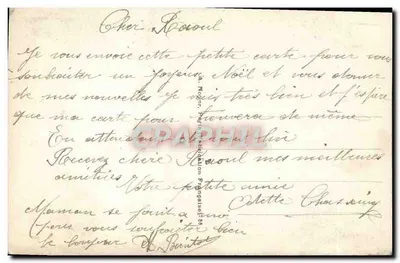 Cher Raoul
Je vous envoie cette petite carte pour vous
souhaiter un joyeux Noël et vous donner
de mes nouvelles Je suis très bien et j'espère
que ma carte pour trouvera de même
En attendant
Recevez chère Raoul mes meilleures
amitiés
Votre petite amie
Odette
Maman se joint a moi
pour vous souhaiter bien
le bonjour